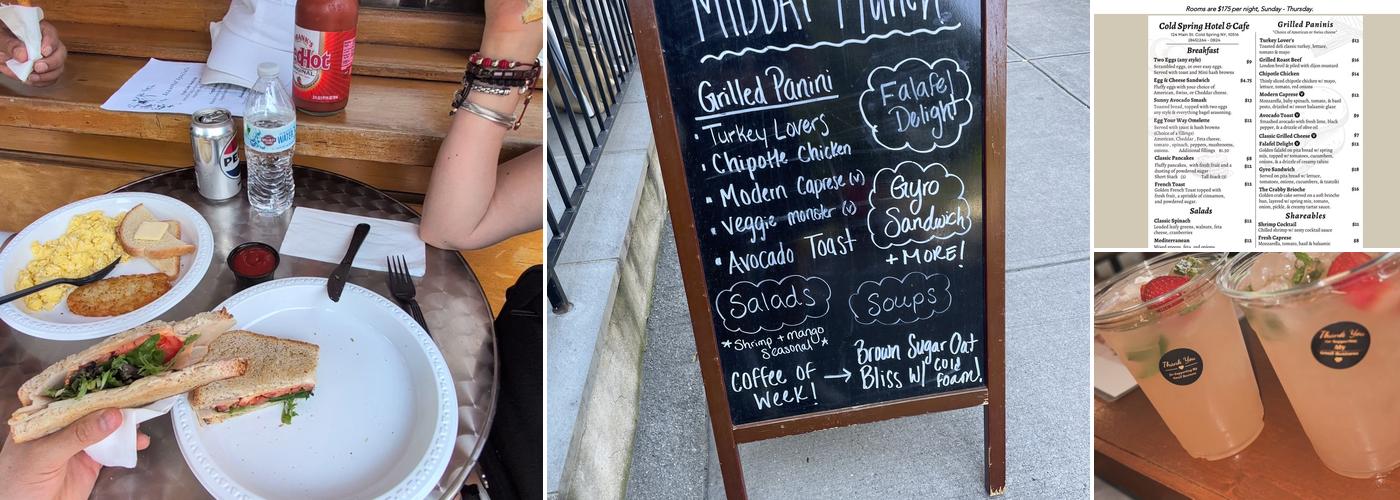 RedHot
PE
WATER
MIDDAY Munch
Grilled Panini
• Turkey Lovers
• Chipotle Chicken
• Modern Caprese (v)
• Veggie monster (v)
• Avocado Toast
Falafel
Delight
Gyro
Sandwich
+ MORE!
Salads
*Shrimp + mango
seasonal*
Soups
Coffee of
Week!
→ Brown Sugar Oat
Bliss w/ cold
foam!
Rooms are $175 per night, Sunday - Thursday.
Cold Spring Hotel & Cafe
124 Main St. Cold Spring NY, 10516
(845)264 - 0826
Breakfast
Two Eggs (any style) $9
Scrambled eggs, or over easy eggs.
Served with toast and Mini hash browns
Egg & Cheese Sandwich $4.75
Fluffy eggs with your choice of
American, Swiss, or Cheddar cheese.
Sunny Avocado Smash $13
Toasted bread, topped with two eggs
any style & everything bagel seasoning.
Egg Your Way Omelette $12
Served with toast & hash browns
(Choice of 2 fillings)
American, Cheddar, Feta cheese,
tomato, spinach, peppers, mushrooms,
onions. Additional fillings $1.50
Classic Pancakes $8
Fluffy pancakes, with fresh fruit and a $12
dusting of powdered sugar
Short Stack (2) Tall Stack (3)
French Toast $12
Golden French Toast topped with
fresh fruit, a sprinkle of cinnamon,
and powdered sugar.
Salads
Classic Spinach $12
Loaded leafy greens, walnuts, feta
cheese, cranberries
Mediterranean $12
Mixed greens, feta, red onions
Grilled Paninis
*Choice of American or Swiss cheese*
Turkey Lover's $13
Toasted deli classic turkey, lettuce,
tomato & mayo
Grilled Roast Beef $16
London broil & piled with dijon mustard
Chipotle Chicken $14
Thinly sliced chipotle chicken w/ mayo,
lettuce, tomato, red onions
Modern Caprese V $12
Mozzarella, baby spinach, tomato, & basil
pesto, drizzled w/ sweet balsamic glaze
Avocado Toast V $9
Smashed avocado with fresh lime, black
pepper, & a drizzle of olive oil
Classic Grilled Cheese V $7
Falafel Delight V $12
Golden falafel on pita bread w/ spring
mix, topped w/ tomatoes, cucumbers,
onions, & a drizzle of creamy tahini
Gyro Sandwich $18
Served on pita bread w/ lettuce,
tomatoes, onions, cucumbers, & tzatziki
The Crabby Brioche $16
Golden crab cake served on a soft brioche
bun, layered w/ spring mix, tomato,
onion, pickle, & creamy tartar sauce.
Shareables
Shrimp Cocktail $12
Chilled shrimp w/ zesty cocktail sauce
Fresh Caprese $8
Mozzarella, tomato, basil & balsamic
Thank You
for Supporting My
Small Business
Thank You
for Supporting
My
Small Business